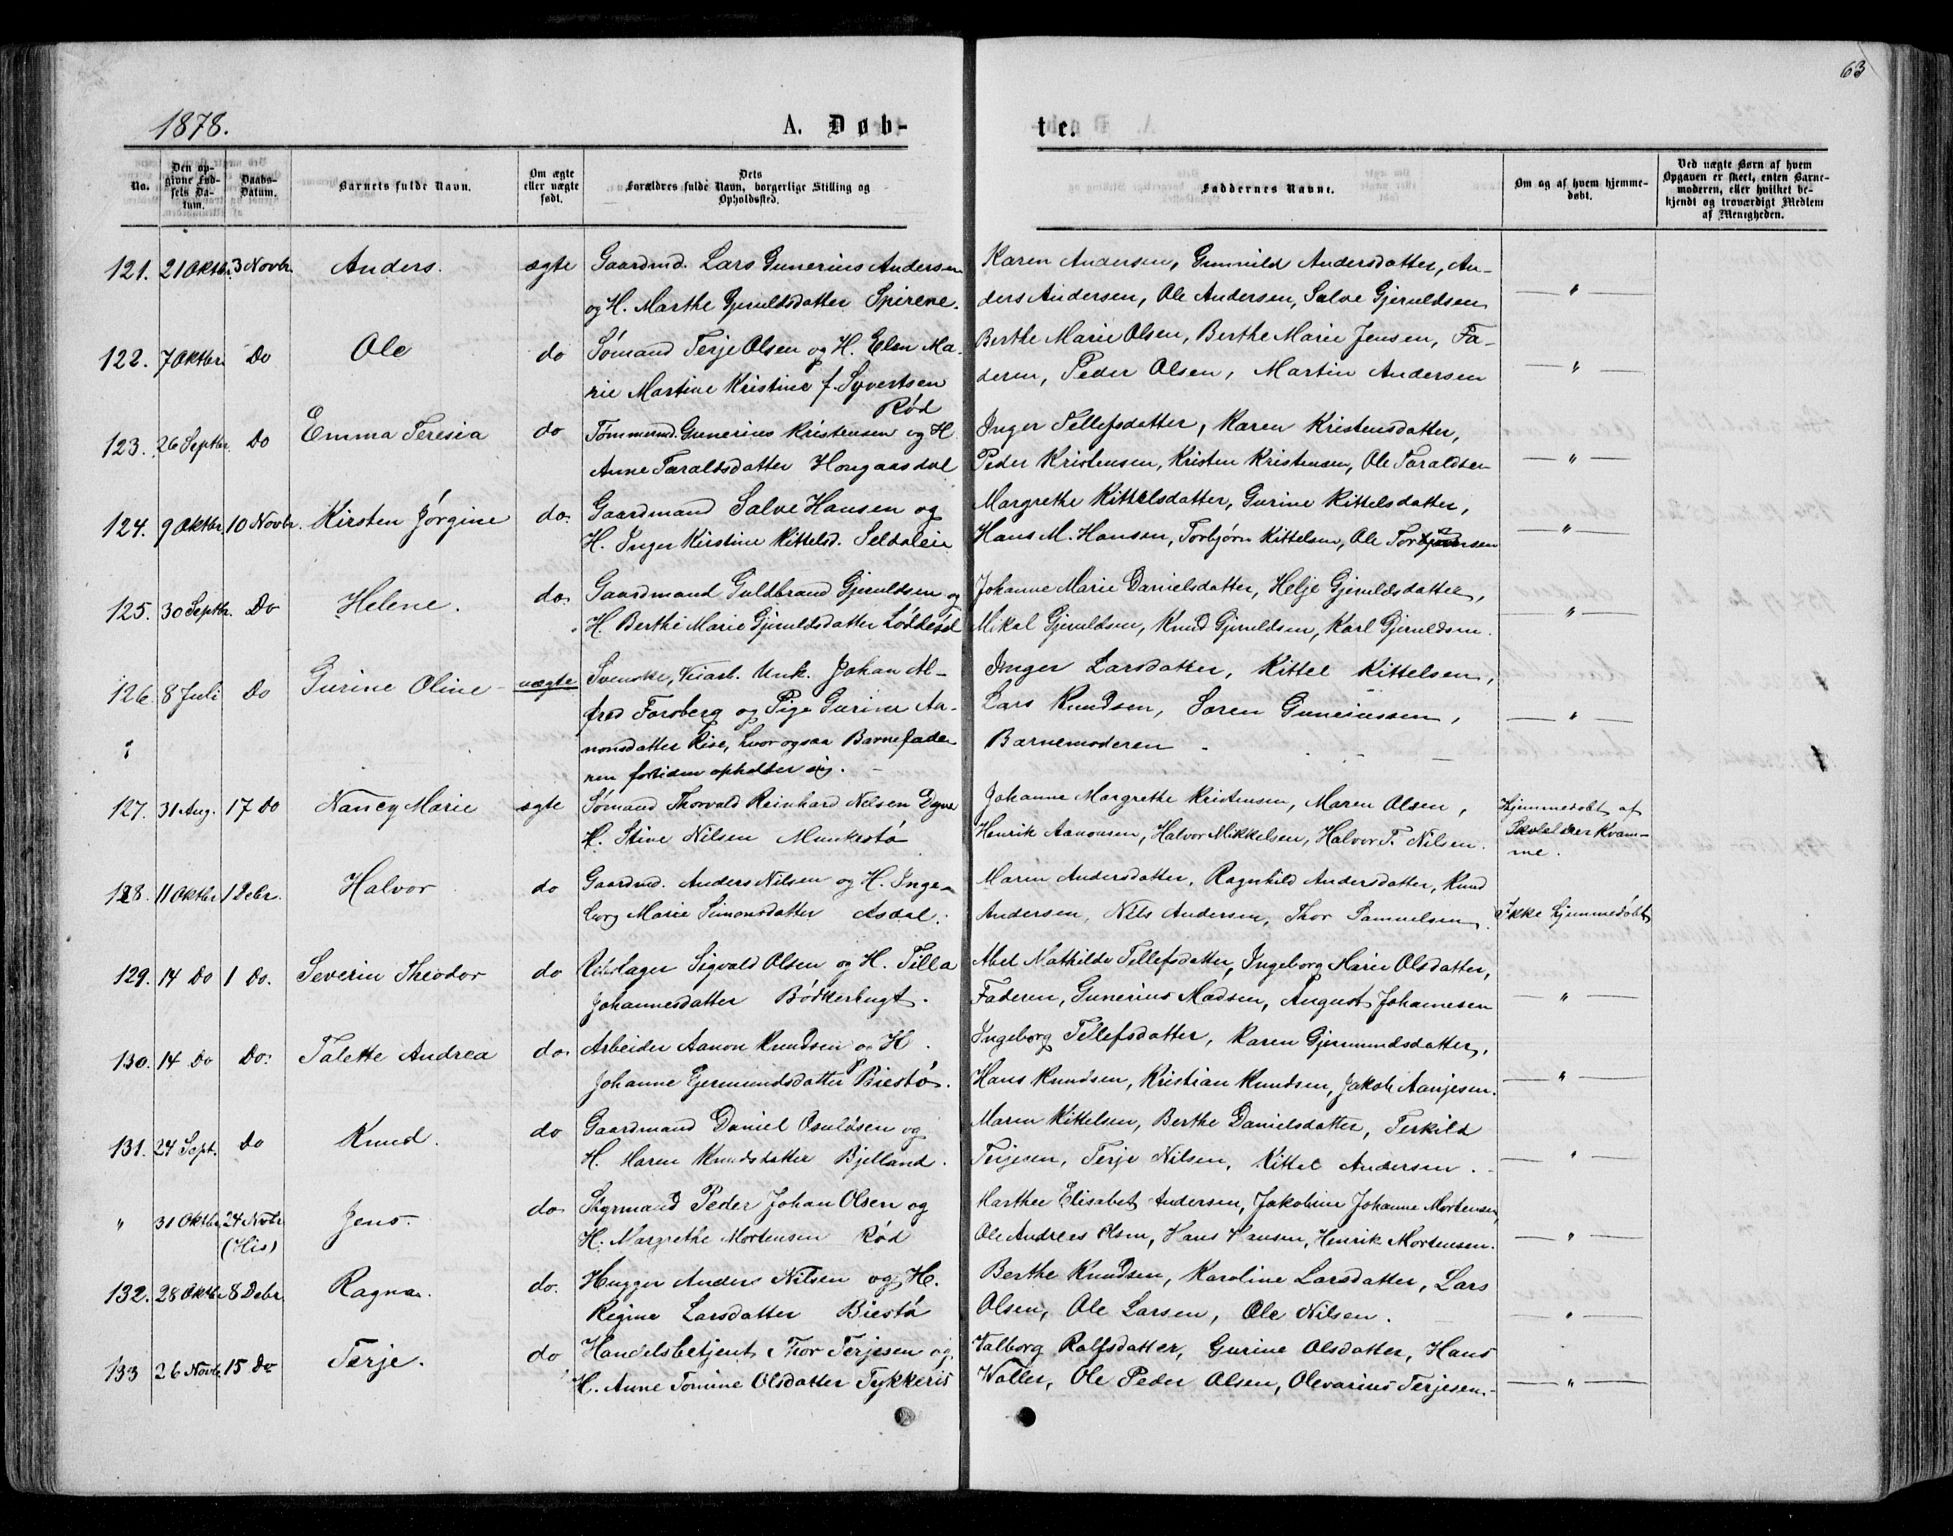 63
1878. A. Døb- te.
No.
Den op-
givne Fød-
sels Da-
tum.
Daabs-
Datum.
Barnets fulde Navn.
Om ægte
eller uægte
født.
Dets
Forældres fulde Navn, borgerlige Stilling og
Opholdssted.
Faddernes Navne.
Om og af hvem hjemme-
døbt.
Ved uægte Børn af hvem
Opgaven er skeet, enten Barne-
moderen, eller hvilket be-
kjendt og troværdigt Medlem
af Menigheden.
121. 21 Oktbr. 3 Novbr. Anders. ægte Gaardmd. Lars Gunerius Andersen
og H. Marthe Gjeruldsdatter Spirene.
Karen Andersen, Gunnild Andersdatter, An-
ders Andersen, Ole Andersen, Salve Gjeruldsen — " —
122. 7 Oktbr. Do Ole do Sømand Terje Olsen og H. Elen Ma-
rie Martine Kristine f. Syvertsen
Rød
Berthe Marie Olsen, Berthe Marie Jensen, Fa-
deren, Peder Olsen, Martin Andersen — " —
123. 26 Septbr. Do Emma Teresia do Tømmermd. Gunerius Kristensen og H.
Anne Taraldsdatter Hougaasdal
Inger Tellefsdatter, Karen Kristensdatter,
Peder Kristensen, Kristen Kristensen, Ole Taraldsen — " —
124. 9 Oktbr. 10 Novbr. Kirsten Jørgine do. Gaardmand Salve Hansen og
H. Inger Kirstine Kittelsd. Seldalen
Margrethe Kittelsdatter, Gurine Kittelsdatter,
Hans M. Hansen, Torbjørn Kittelsen, Ole — " —
125. 30 Septbr. Do Helene. do. Gaardmand Guldbrand Gjeruldsen og
H. Berthe Marie Gjeruldsdatter Løddesøl
Johanne Marie Danielsdatter, Helje Gjeruldsdatter,
Mikal Gjeruldsen, Knud Gjeruldsen, Karl Gjeruldsen. — " —
126 8 Juli Do Gurine Oline - uægte Svenske, Veiarb. Unk. Johan Al-
fred Forsberg og Pige Gurine Aa-
nonsdatter Rise, hvor ogsaa Barnefade-
ren fortiden opholder sig.
Inger Larsdatter, Kittel Kittelsen,
Lars Knudsen, Søren Guneriussen,
Barnemoderen — " —
127. 31 Aug. 17 Do Nancy Marie ægte Sømand Thorvald Reinhard Nilsen Dyve
H. Stine Nilsen Munkestø
Johanne Margrethe Kristensen, Maren Olsen,
Henrik Aanonsen, Halvor Mikkelsen, Halvor T. Nilsen.
Hjemmedøbt af
Skolelærer Kvam-
me.
128. 11 Oktbr 1 Debr. Halvor do Gaardmd. Anders Nilsen og H. Inge-
borg Marie Simonsdatter Asdal.
Maren Andersdatter, Ragnhild Andersdatter, Knud
Andersen, Nils Andersen, Thor Samuelsen. Ikke hjemmedøbt
129. 14 Do 1 Do. Severin Theodor do Sigvald Olsen og H. Tilla
Johannesdatter Bødkerbugt.
Abel Mathilde Tellefsdatter, Ingeborg Marie Olsdatter,
Faderen, Gunerius Madsen, August Johannesen — " —
130. 14 Do Do. Talette Andrea do. Arbeider Aanon Knudsen og H.
Johanne Gjermundsdatter Biestø.
Ingeborg Tellefsdatter, Karen Gjermundsdatter,
Hans Knudsen, Kristian Knudsen, Jakob Aanjesen. — " —
131. 24 Sept. Do Knud. do Gaardmand Daniel Osuldsen og
H. Maren Knudsdatter Bjelland.
Maren Kittelsen, Berthe Danielsdatter, Terkild
Terjesen, Terje Nilsen, Kittel Andersen. — " —
" 31 Oktbr 24 Novbr
(His) Jens. do Styrmand Peder Johan Olsen og
H. Margrethe Mortensen Rød
Marthe Elisabet Andersen, Jakobine Johanne Mortensen,
Ole Andreas Olsen, Hans Hansen, Henrik Mortensen. — " —
132. 28 Oktbr 8 Debr. Ragna. do. Hugger Anders Nilsen og H.
Regine Larsdatter Biestø
Berthe Knudsen, Karoline Larsdatter, Lars
Olsen, Ole Larsen, Ole Nilsen. — " —
133 26 Novb. 15 Do Terje. do Handelsbetjent Thor Terjesen og
H. Anne Tomine Olsdatter Tykkeris
Valborg Rolfsdatter, Gurine Olsdatter, Hans
Waller, Ole Peder Olsen, Olevarius Terjesen. — " —